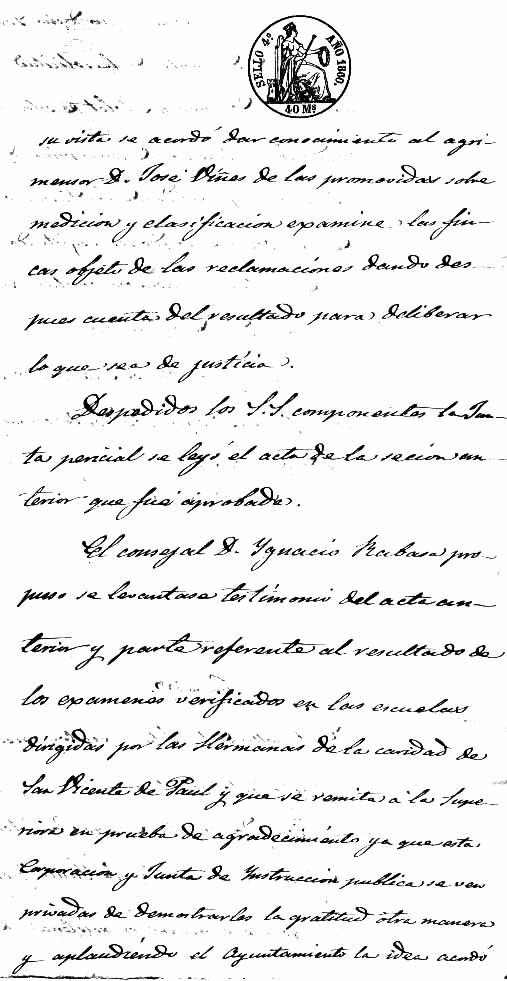 SELLO 4º AÑO 1860.
40 Mˢ
su vista se acordó dar conocimiento al agri-
mensor D. José Viñes de las promovidas sobre
medicion y clasificacion examine las fin-
cas objeto de las reclamaciones dando des
pues cuenta del resultado para deliberar
lo que sea de justicia.
Despedidos los S.S. componentes la Jun-
ta pericial se leyó el acta de la secion an-
terior que fué aprobada.
El consejal D. Ygnacio Rabasa pro-
puso se levantase testimonio del acta an-
terior y parte referente al resultado de
los examenes verificados en las escuelas
dirigidas por las Hermanas de la caridad de
San Vicente de Paul y que se remita á la Supe-
riora en prueba de agradecimiento ya que esta
Corporacion y Junta de Instruccion publica se ven
privadas de demostrarles la gratitud otra manera
y aplaudiendo el Ayuntamiento la idea acordó